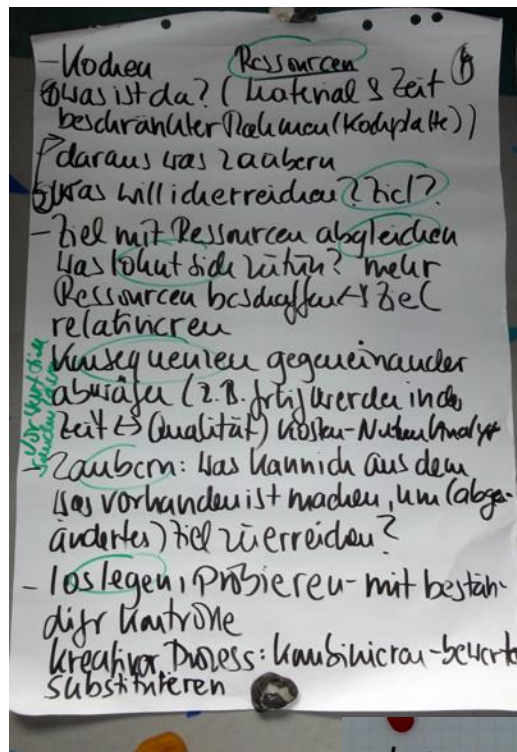 Ressourcen
- Kochen
was ist da? (Material & Zeit
beschränkter Rahmen (Kochplatte))
daraus was zaubern
was will ich erreichen? Ziel?
- Ziel mit Ressourcen abgleichen
was lohnt sich zu tun? mehr
Ressourcen beschaffen ↔ Ziel
relativieren
Konsequenzen gegeneinander
abwägen (z.B. fertig werden in der
Zeit ↔ Qualität) Kosten-Nutzen Analyse
- Zaubern: was kann ich aus dem
was vorhanden ist machen, um (abge-
ändertes) Ziel zu erreichen?
- loslegen, Probieren - mit bestän-
diger Kontrolle
kreativer Prozess: kombinieren - bewerten
substituieren